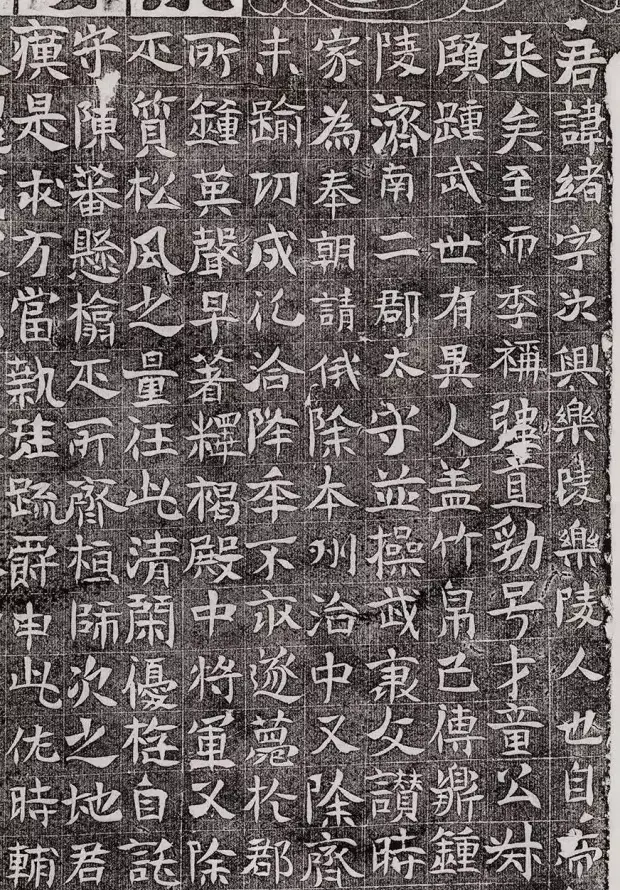 君諱緒字次興樂陵樂陵人也自
来矣至而季禰強直幼号才童公
頤踵武世有異人盖竹帛已傳鼎鍾
陵濟南二郡太守並操武衷文讃時
家為奉朝請俄除本州治中又除齊
未踰切成化洽降年不永遂薨於郡
所鍾英聲早著釋褐殿中將軍又除
丕質松風之量汪此清閑優存自託
守陳蕃懸榻不所齊桓師次之地君
瘼是求方當執珪疏爵申此佐時輔